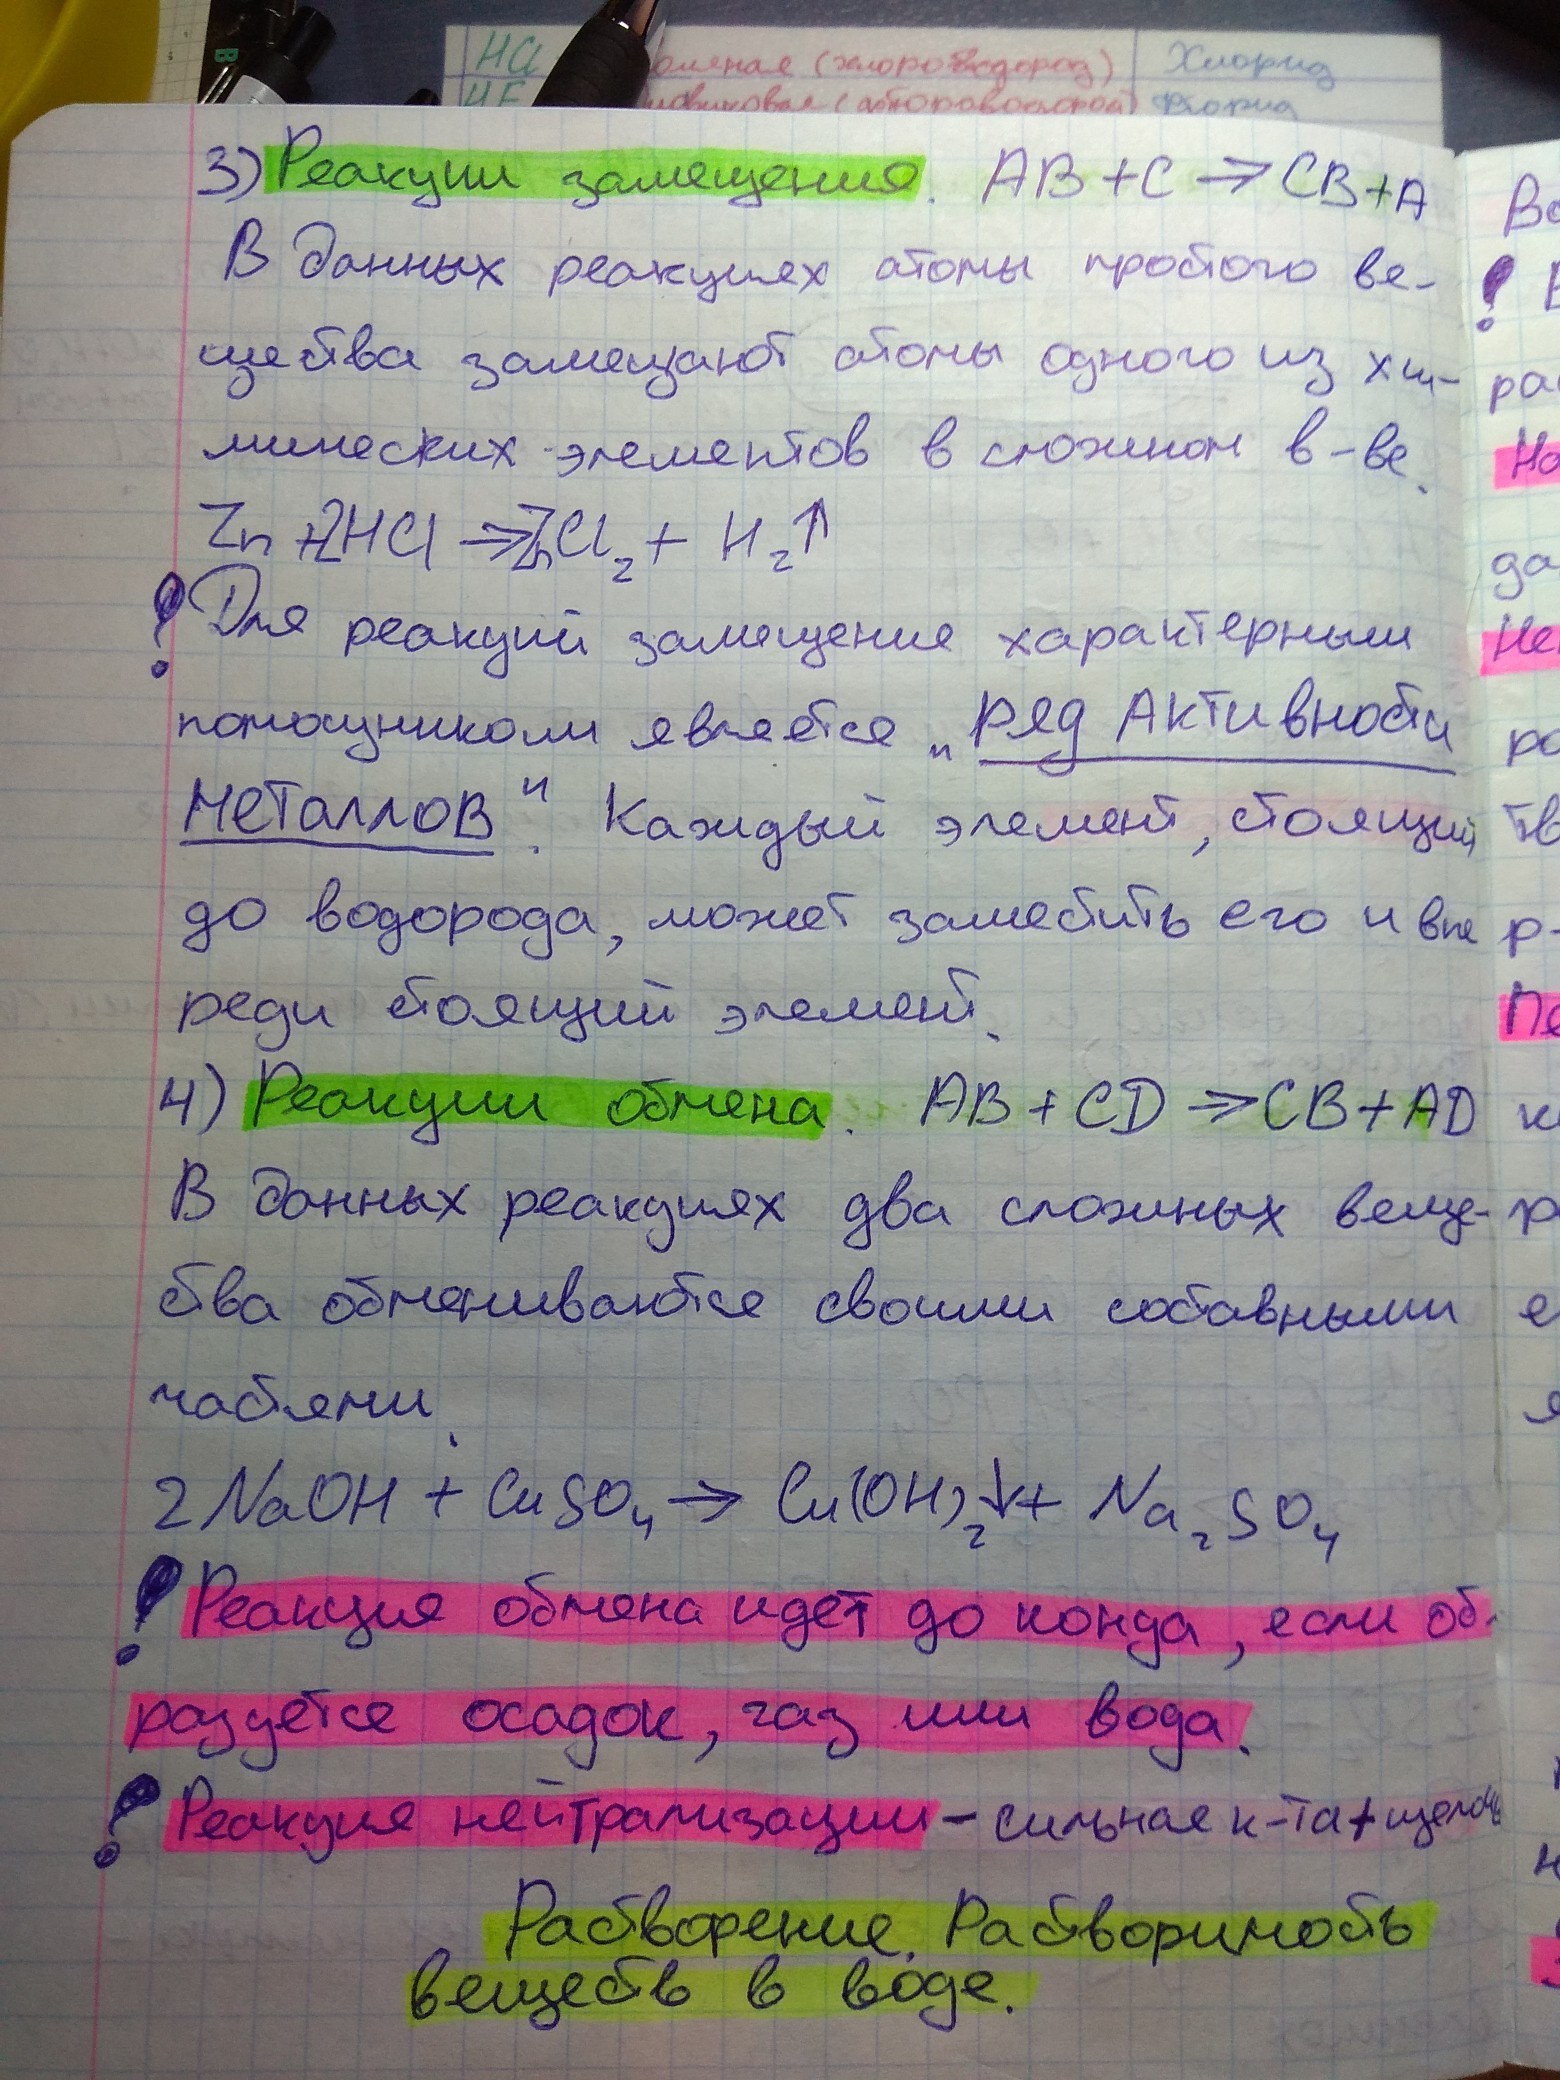 HCl
оляная (хлороводород)
Хлорид
HF
Фторид
3) Реакции замещения. AB + C → CB + A
В данных реакциях атомы простого ве-
щества замещают атомы одного из хи-
мических элементов в сложном в-ве.
Zn + 2HCl → ZnCl₂ + H₂↑
! Для реакций замещение характерным
помощником является „Ряд Активности
Металлов". Каждый элемент, стоящий
до водорода, может заместить его и впе
реди стоящий элемент.
4) Реакции обмена. AB + CD → CB + AD
В данных реакциях два сложных веще-
ства обмениваются своими составными
частями.
2NaOH + CuSO₄ → Cu(OH)₂↓ + Na₂SO₄
! Реакция обмена идет до конца, если об-
разуется осадок, газ или вода.
! Реакция нейтрализации – сильная к-та + щелочь
Растворение. Растворимость
веществ в воде.